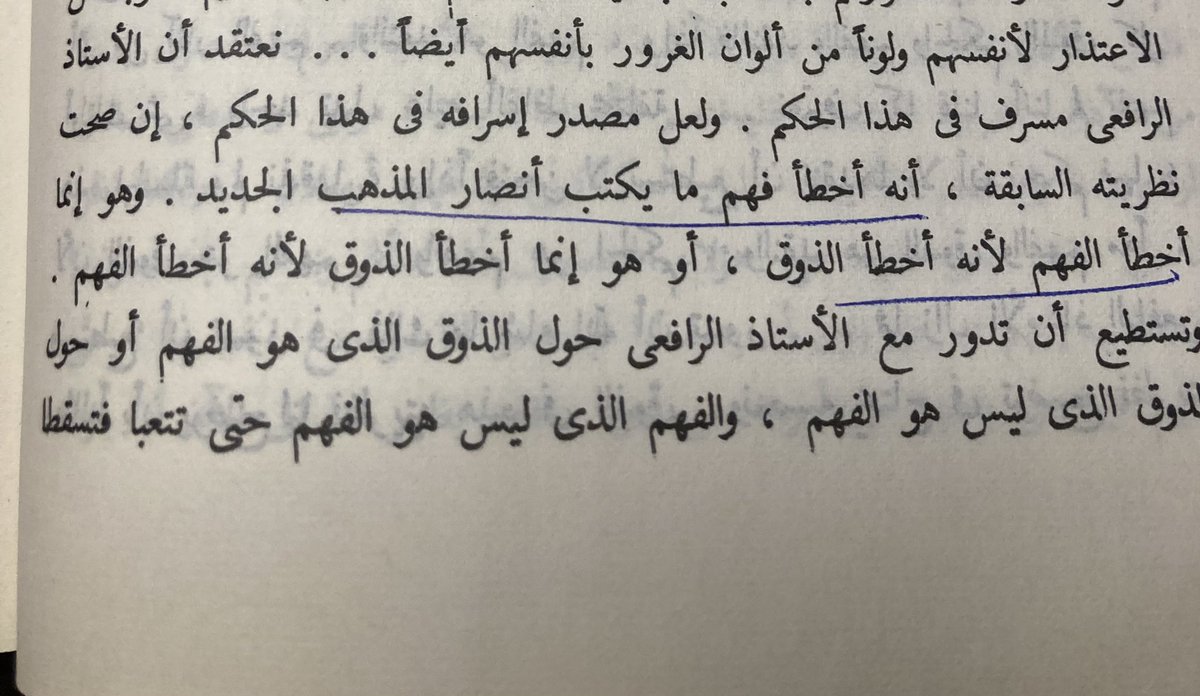 الاعتذار لأنفسهم ولوناً من ألوان الغرور بأنفسهم أيضاً . . . نعتقد أن الأستاذ
الرافعى مسرف فى هذا الحكم . ولعل مصدر إسرافه فى هذا الحكم ، إن صحت
نظريته السابقة ، أنه أخطأ فهم ما يكتب أنصار المذهب الجديد . وهو إنما
أخطأ الفهم لأنه أخطأ الذوق ، أو هو إنما أخطأ الذوق لأنه أخطأ الفهم .
وتستطيع أن تدور مع الأستاذ الرافعى حول الذوق الذى هو الفهم أو حول
الذوق الذى ليس هو الفهم ، والفهم الذى ليس هو الفهم حتى تتعبا فتسقطا